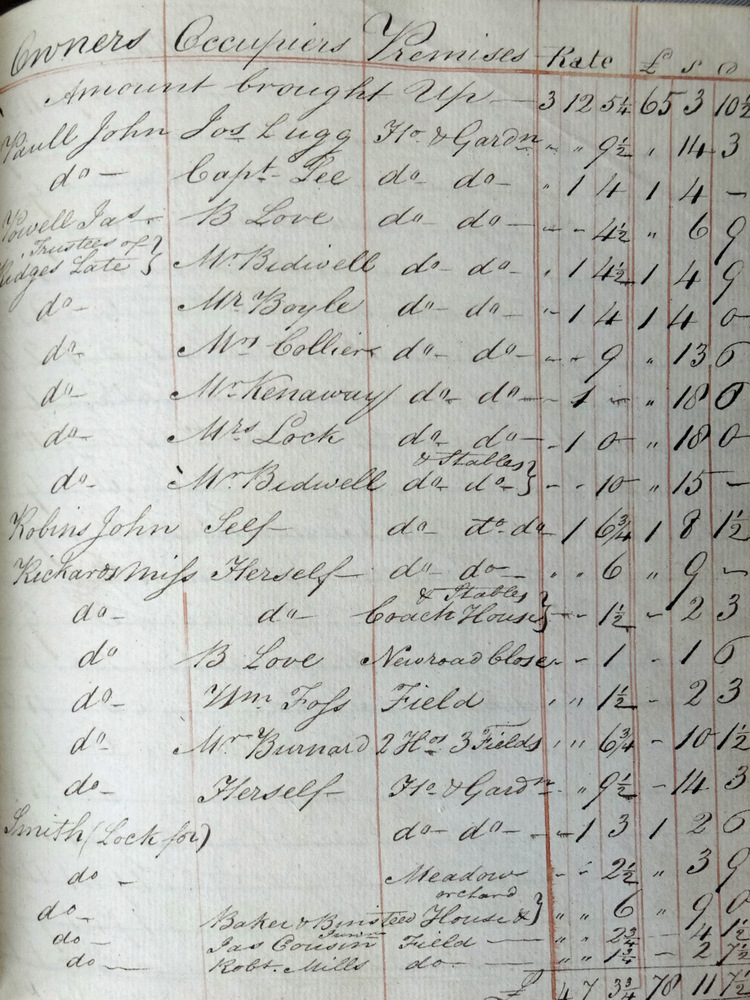 Owners Occupiers Premises Rate £ s D
Amount brought Up — 3 12 5¼ 65 3 10½
Paull John Jos Lugg Ho & Gardn „ „ 9½ „ 14 3
do — Capt Lee do do „ 1 4 1 4 –
Powell Jas. B Love do do – – 4½ „ 6 9
Trustees of }
Ridges Late } Mr Bidwell do do „ 1 4½ 1 4 9
do Mr Boyle do do „ 1 4 1 4 0
do Mrs Collier do do „ „ 9 „ 13 6
do Mr Kenaway do do – 1 – „ 18 0
do Mrs Lock do do – 1 0 „ 18 0
& Stables }
do Mr Bidwell do do } – – 10 „ 15 –
Robins John Self do do do 1 6¾ 1 8 1½
Richards Miss Herself do do „ „ 6 „ 9 –
& Stables }
do do Coach House } – – 1½ – 2 3
do B Love Newroad Close – – 1 – 1 6
do Wm Foss Field „ „ 1½ – 2 3
do Mr Burnard 2 Hos 3 Fields „ „ 6¾ – 10 1½
do Herself Ho & Gardn „ „ 9½ – 14 3
Smith (Lock for) do do – – 1 3 1 2 6
do – Meadow – – 2½ „ 3 9
orchard }
do Baker & Binsteed House & } „ „ 6 „ 9 0
do Jas Cousin Junr Field – „ „ 2¾ – 4 1½
do Robt. Mills do – „ „ 1¾ – 2 7½
£ 4 7 3¾ 78 11 7½